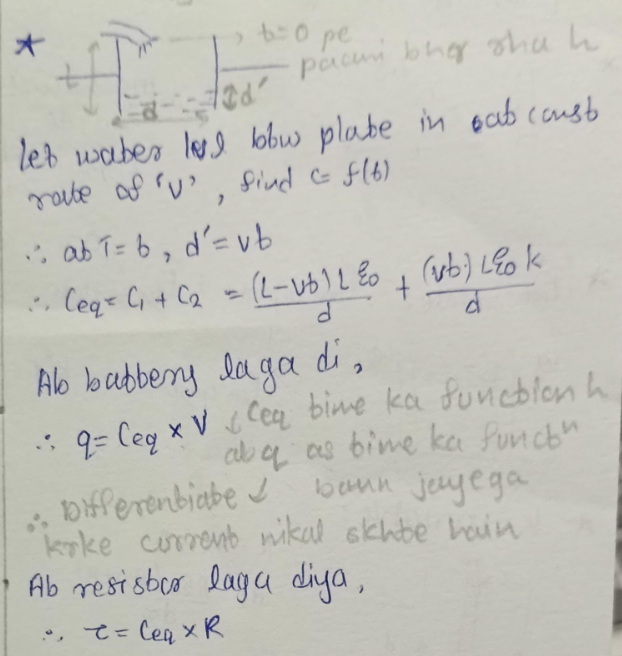 * t=0 pe
pacani bhar rha h
L
d
d'
Let water level btw plate in at const
rate of 'v', find C = f(t)
∴ at T=t, d'=vt
∴ Ceq = C1 + C2 = (L-vt)Lε0/d + (vt)Lε0k/d
Ab battery laga di,
∴ q = Ceq × V ↓ Ceq time ka function h
ab q as time ka functn
∴ Differentiate ↓ bann jayega
krke current nikal skhte hain
Ab resistor laga diya,
∴ τ = Ceq × R